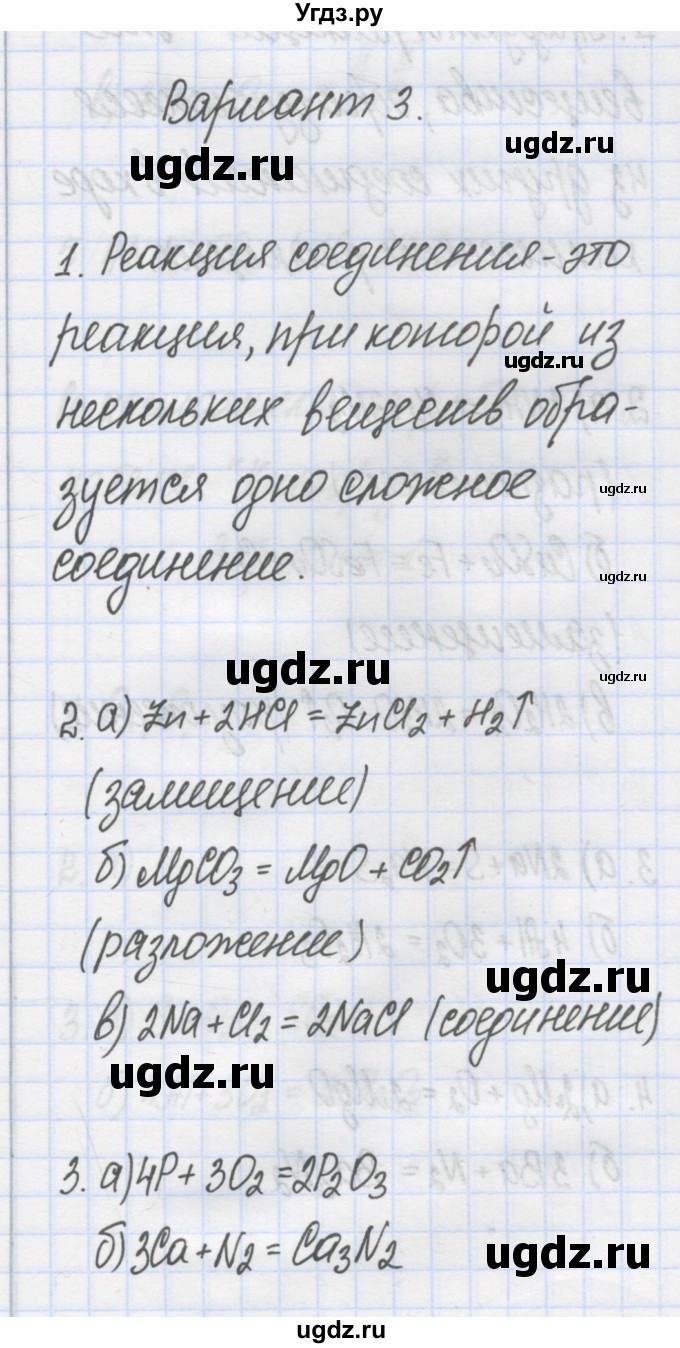 Угдз.ру
Вариант 3.
ugdz.ru
ugdz.ru
1. Реакция соединения - это
реакция, при которой из
ugdz.ru
нескольких веществ обра-
зуется одно сложное
ugdz.ru
соединение.
ugdz.ru
ugdz.ru
ugdz.ru
2. а) Zn + 2HCl = ZnCl₂ + H₂↑
(замещение)
б) MgCO₃ = MgO + CO₂↑
(разложение)
ugdz.ru
в) 2Na + Cl₂ = 2NaCl (соединение)
ugdz.ru
3. а) 4P + 3O₂ = 2P₂O₃
б) 3Ca + N₂ = Ca₃N₂
ugdz.ru
ugdz.ru